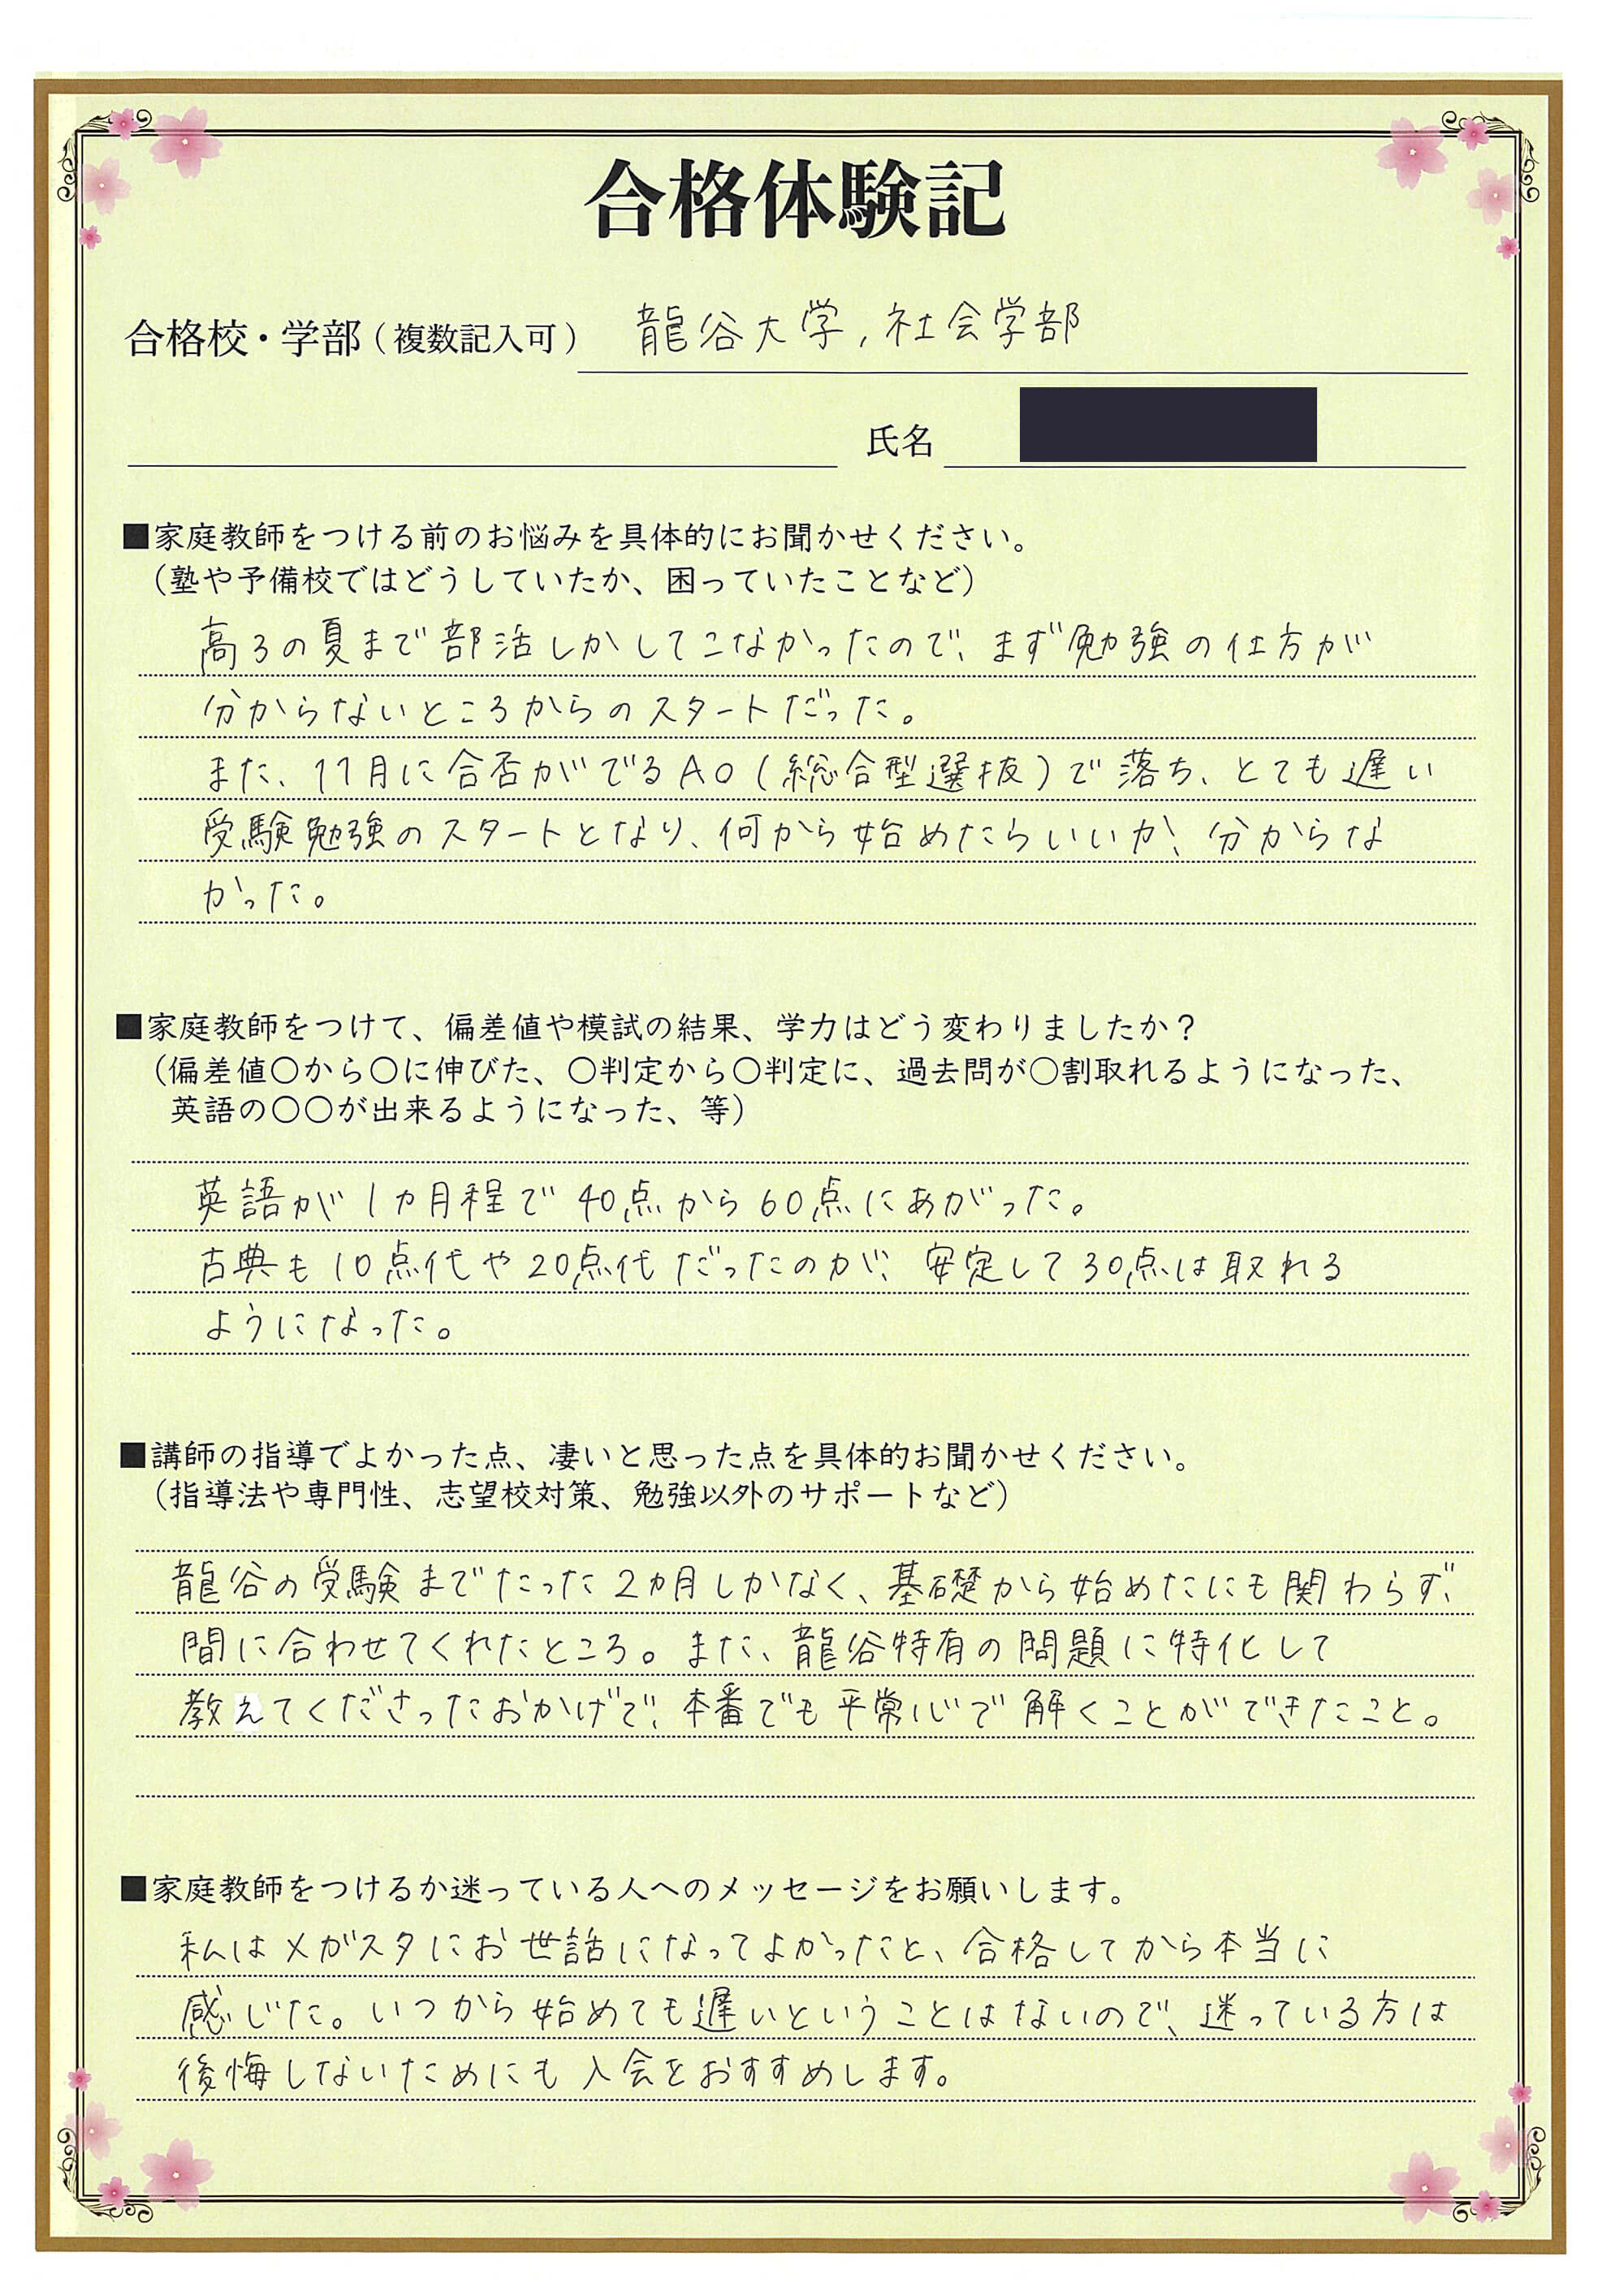 合格体験記
合格校・学部（複数記入可） 龍谷大学,社会学部
氏名
■家庭教師をつける前のお悩みを具体的にお聞かせください。
（塾や予備校ではどうしていたか、困っていたことなど）
高3の夏まで部活しかしてこなかったので、まず勉強の仕方が
分からないところからのスタートだった。
また、11月に合否がでるAO(総合型選抜)で落ち、とても遅い
受験勉強のスタートとなり、何から始めたらいいか、分からな
かった。
■家庭教師をつけて、偏差値や模試の結果、学力はどう変わりましたか？
（偏差値〇から〇に伸びた、〇判定から〇判定に、過去問が〇割取れるようになった、
英語の〇〇が出来るようになった、等）
英語が1カ月程で40点から60点にあがった。
古典も10点代や20点代だったのが、安定して30点は取れる
ようになった。
■講師の指導でよかった点、凄いと思った点を具体的お聞かせください。
（指導法や専門性、志望校対策、勉強以外のサポートなど）
龍谷の受験までたった2カ月しかなく、基礎から始めたにも関わらず、
間に合わせてくれたところ。また、龍谷特有の問題に特化して
教えてくださったおかげで、本番でも平常心で解くことができたこと。
■家庭教師をつけるか迷っている人へのメッセージをお願いします。
私はメガスタにお世話になってよかったと、合格してから本当に
感じた。いつから始めても遅いということはないので、迷っている方は
後悔しないためにも入会をおすすめします。